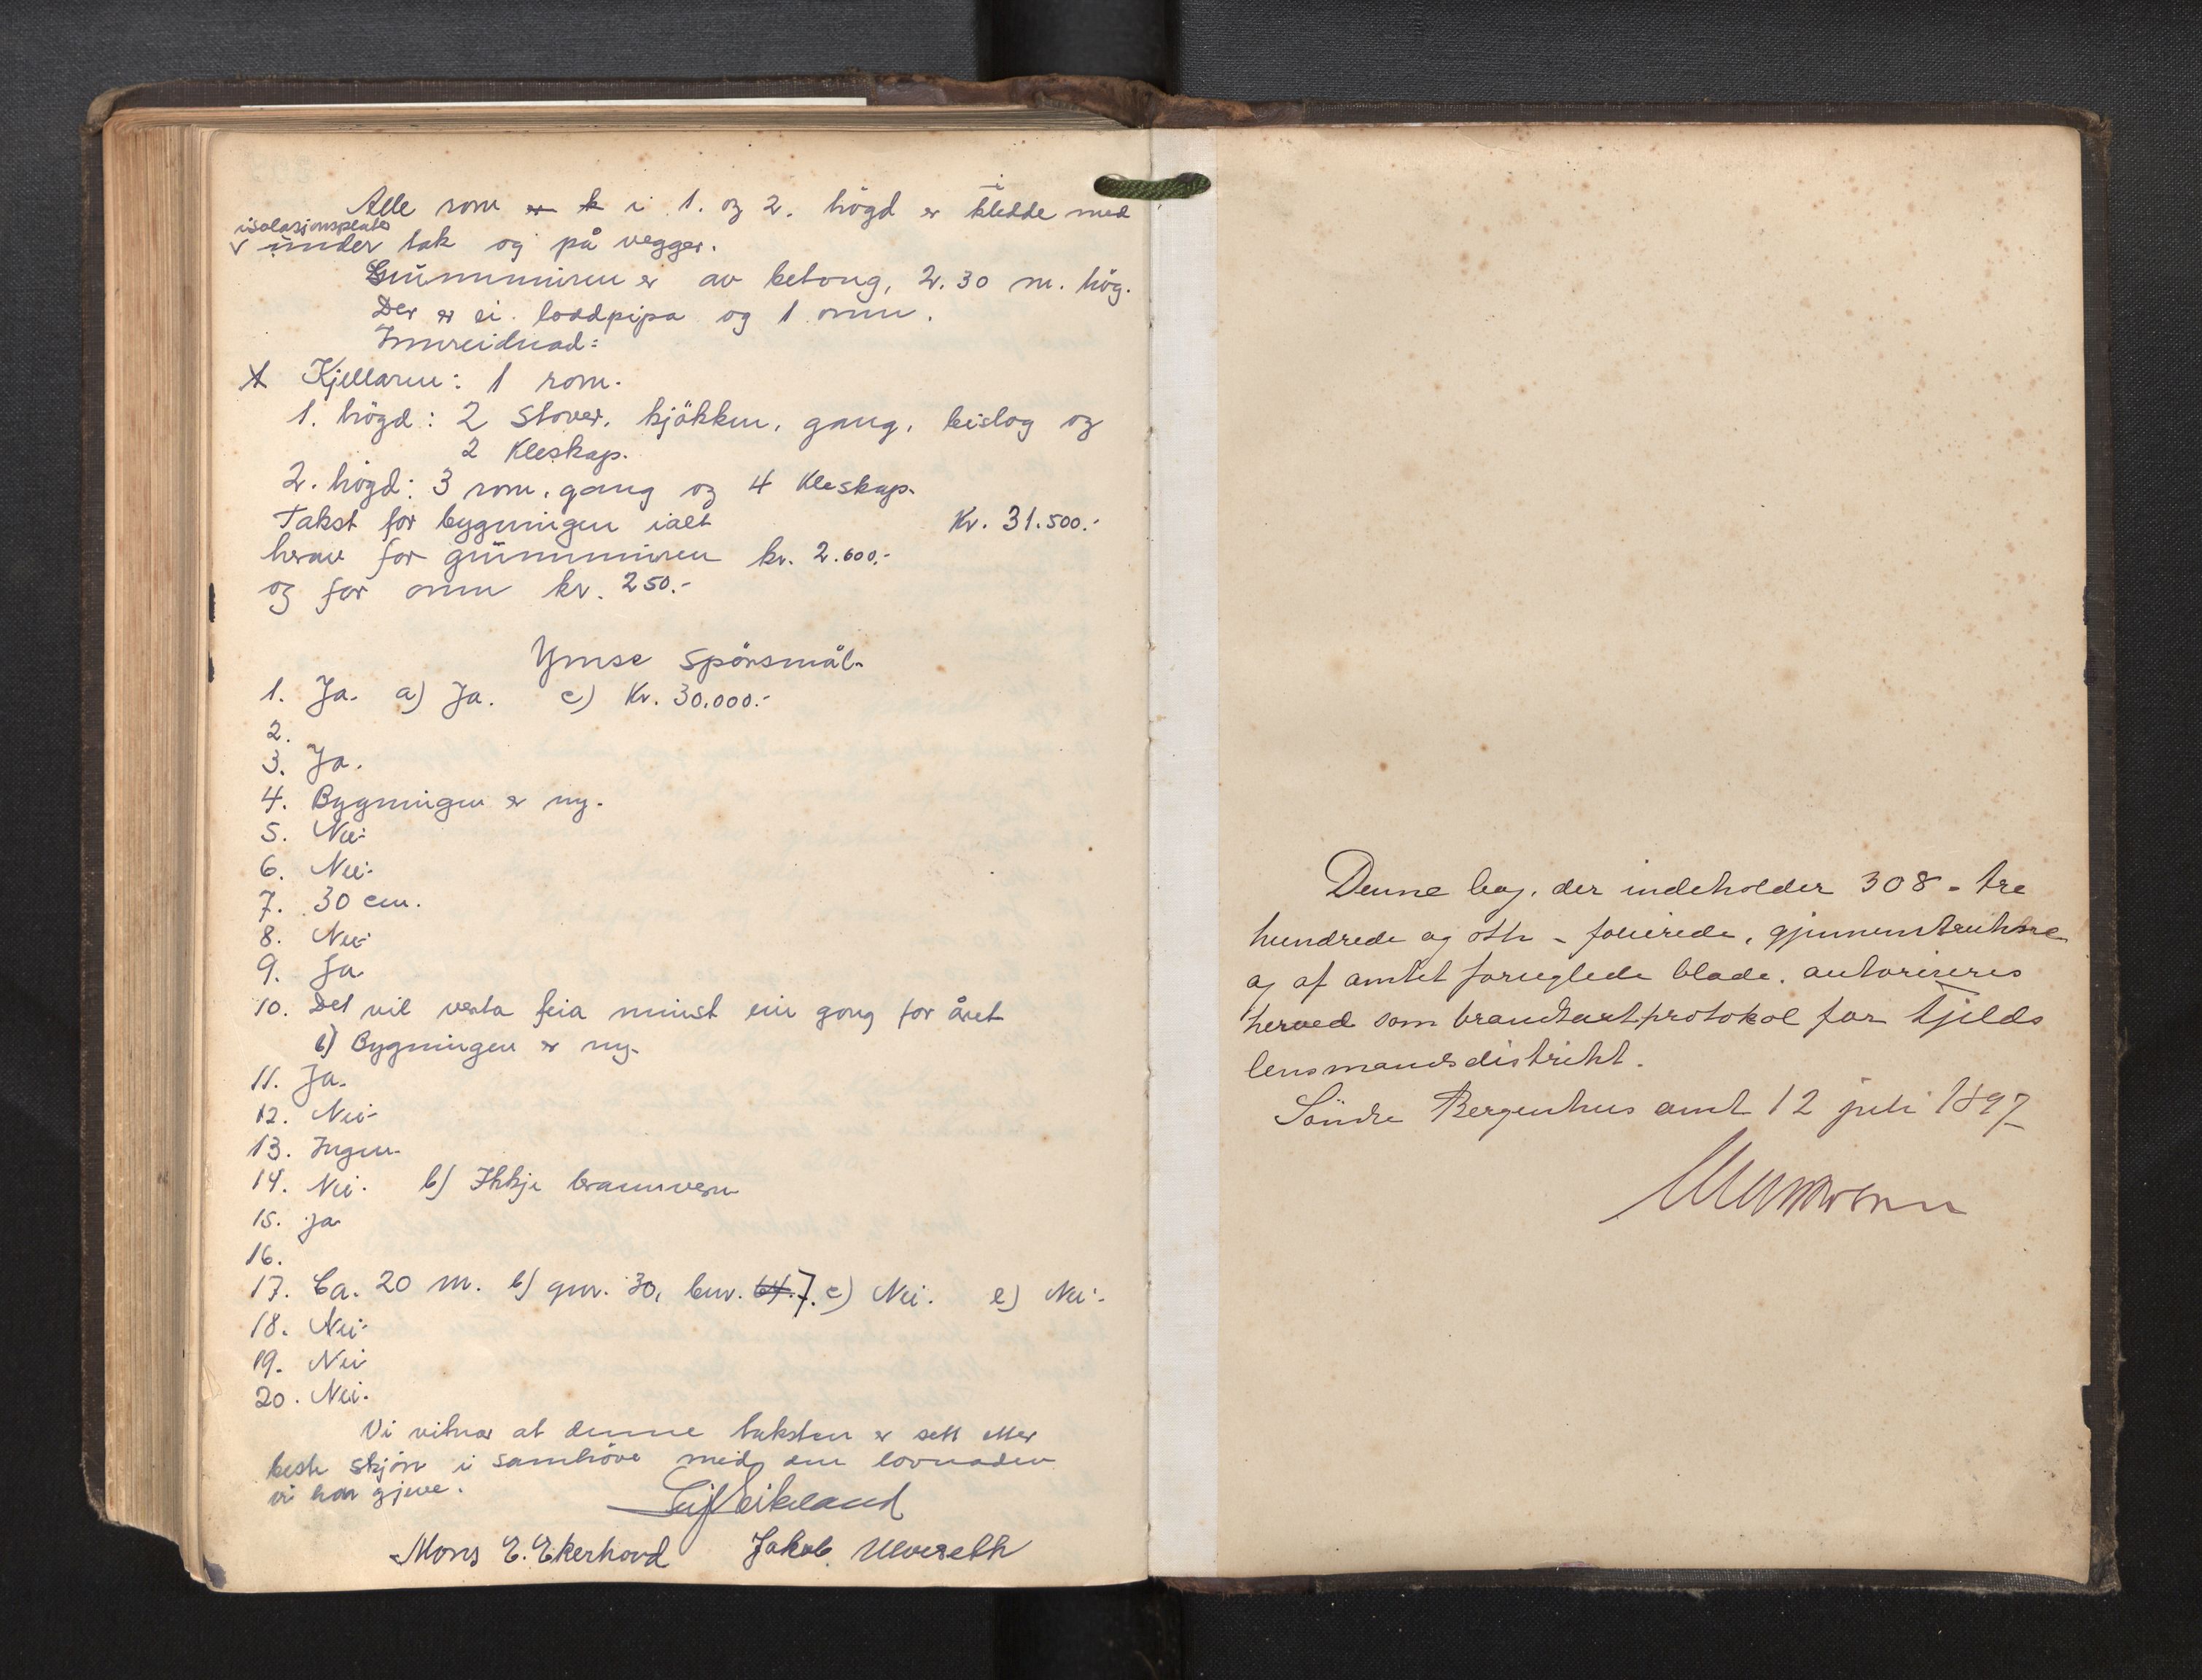 Alle rom er k i 1. og 2. högd er kledde med
isolasjonsplater
v under tak og på vegger.
Grunnmuren er av betong, 2.30 m. hög.
Der er ei loddpipa og 1 omn.
Innreidnad:
Kjellaren: 1 rom.
1. högd: 2 stover, kjökken, gang, bislag og
2 kleskap.
2. högd: 3 rom, gang og 4 kleskap.
Takst for bygningen ialt Kr. 31.500.-
herav for grunnmuren kr. 2.600.-
og for omn kr. 250.-
Ymse spörsmål.
1. Ja. a) Ja. c) Kr. 30.000.-
2.
3. Ja.
4. Bygningen er ny.
5. Nei.
6. Nei.
7. 30 cm.
8. Nei.
9. Ja
10. Det vil verta feia minst ein gong for året
b) Bygningen er ny.
11. Ja.
12. Nei.
13. Ingen.
14. Nei. b) Ikkje brannvern
15. Ja
16.
17. Ca. 20 m. b) gnr. 30, bnr. 64. 7. c) Nei. e) Nei.
18. Nei.
19. Nei
20. Nei.
Vi vitnar at denne taksten er sett etter
beste skjön i samhöve med den lovnaden
vi har gjeve.
Leif Eikeland
Mons E. Ekerhovd Jakob Ulveseth
Denne bog, der indeholder 308 - tre
hundrede og otte - folierede, gjennemtrukne
og af amtet forseglede blade, autoriseres
herved som brandtaxtprotokol for Fjelds
lensmandsdistrikt.
Söndre Bergenhus amt 12 juli 1897